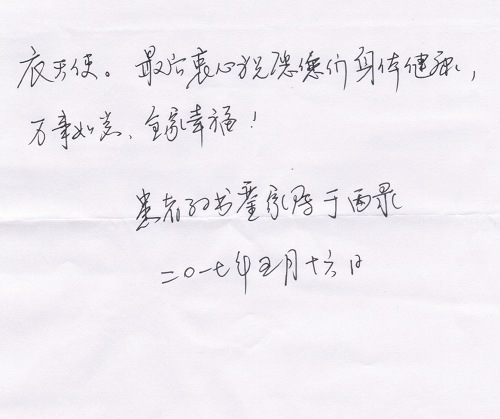 衣天使。最后衷心祝愿您们身体健康,
万事如意、全家幸福!
患者 家属于
二〇一七年五月十六日